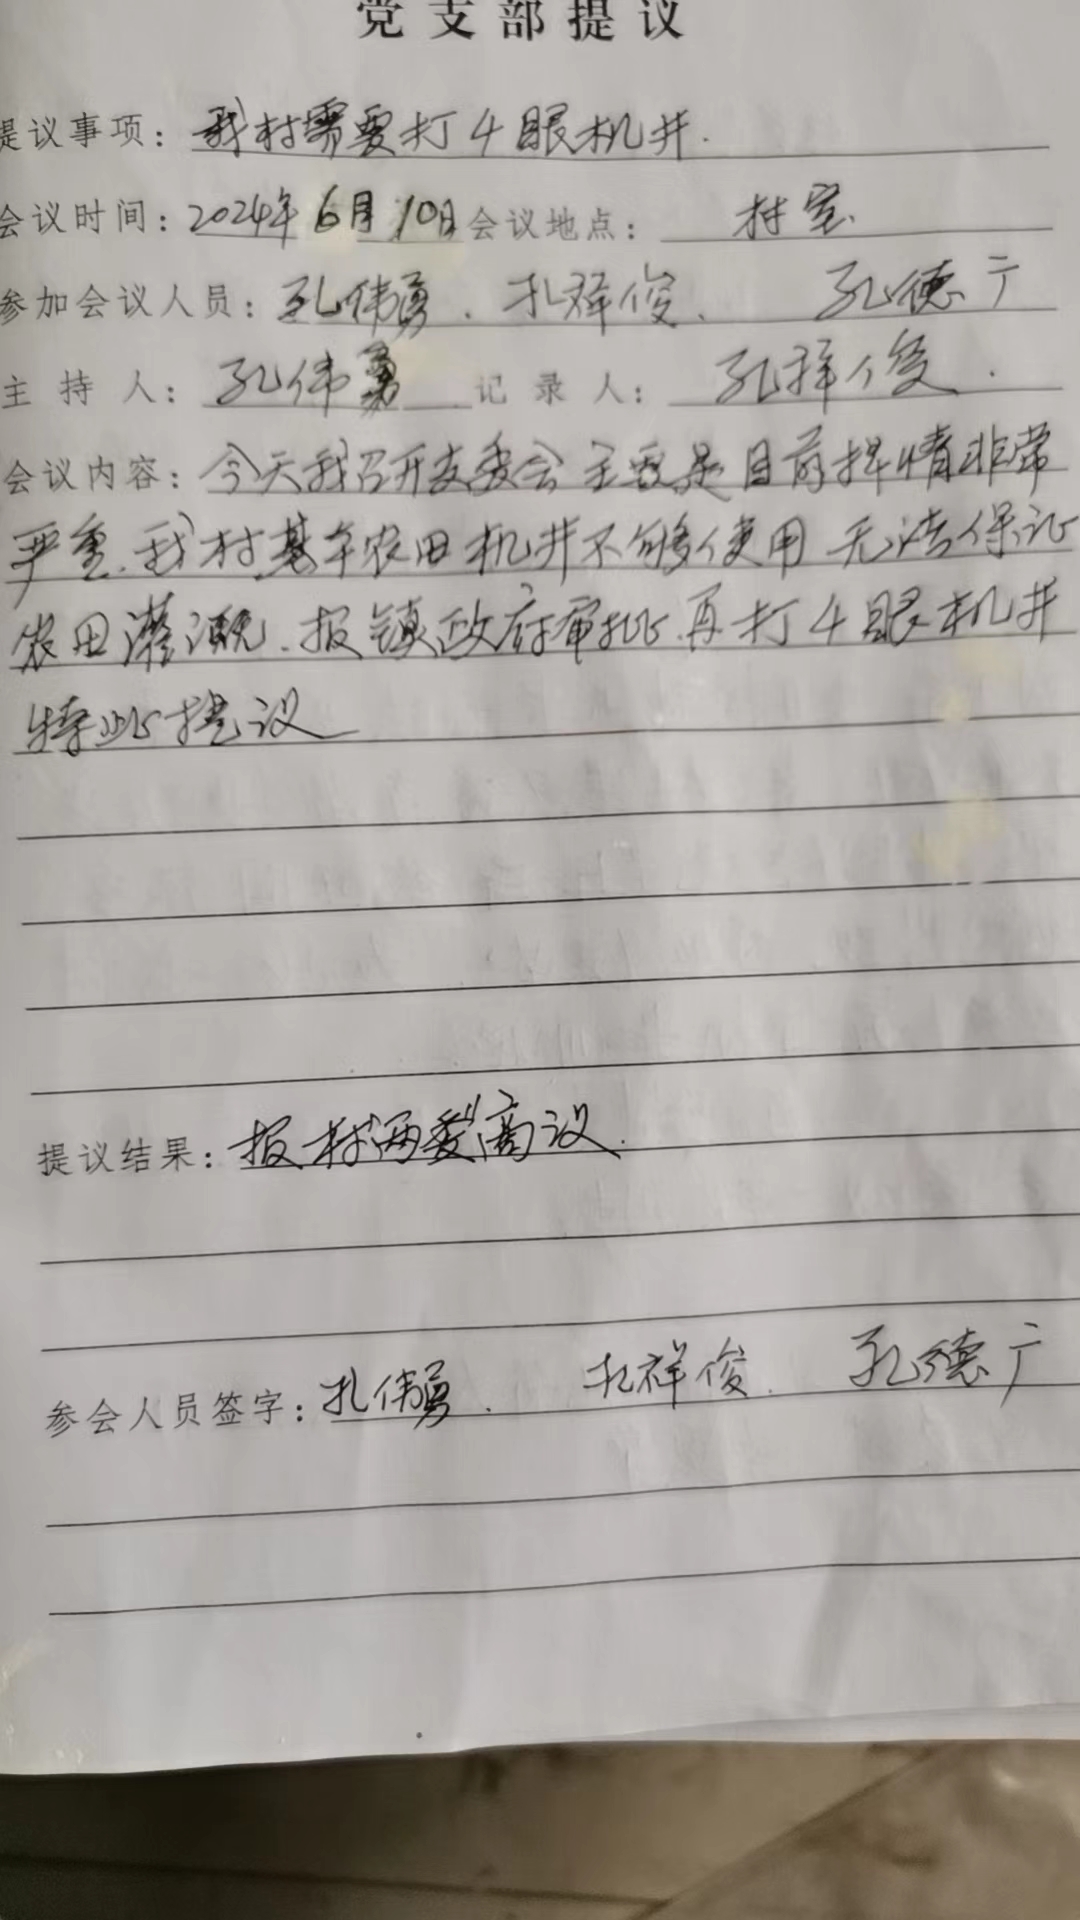 党支部提议
提议事项：我村需要打4眼机井.
会议时间：2024年6月10日 会议地点：村室.
参加会议人员：孔伟勇. 孔祥俊. 孔德广
主持人：孔伟勇 记录人：孔祥俊.
会议内容：今天我召开支委会主要是目前旱情非常
严重.我村基本农田机井不够使用 无法保证
农田灌溉.报镇政府审批.再打4眼机井
特此提议
提议结果：报村两委商议.
参会人员签字：孔伟勇. 孔祥俊. 孔德广